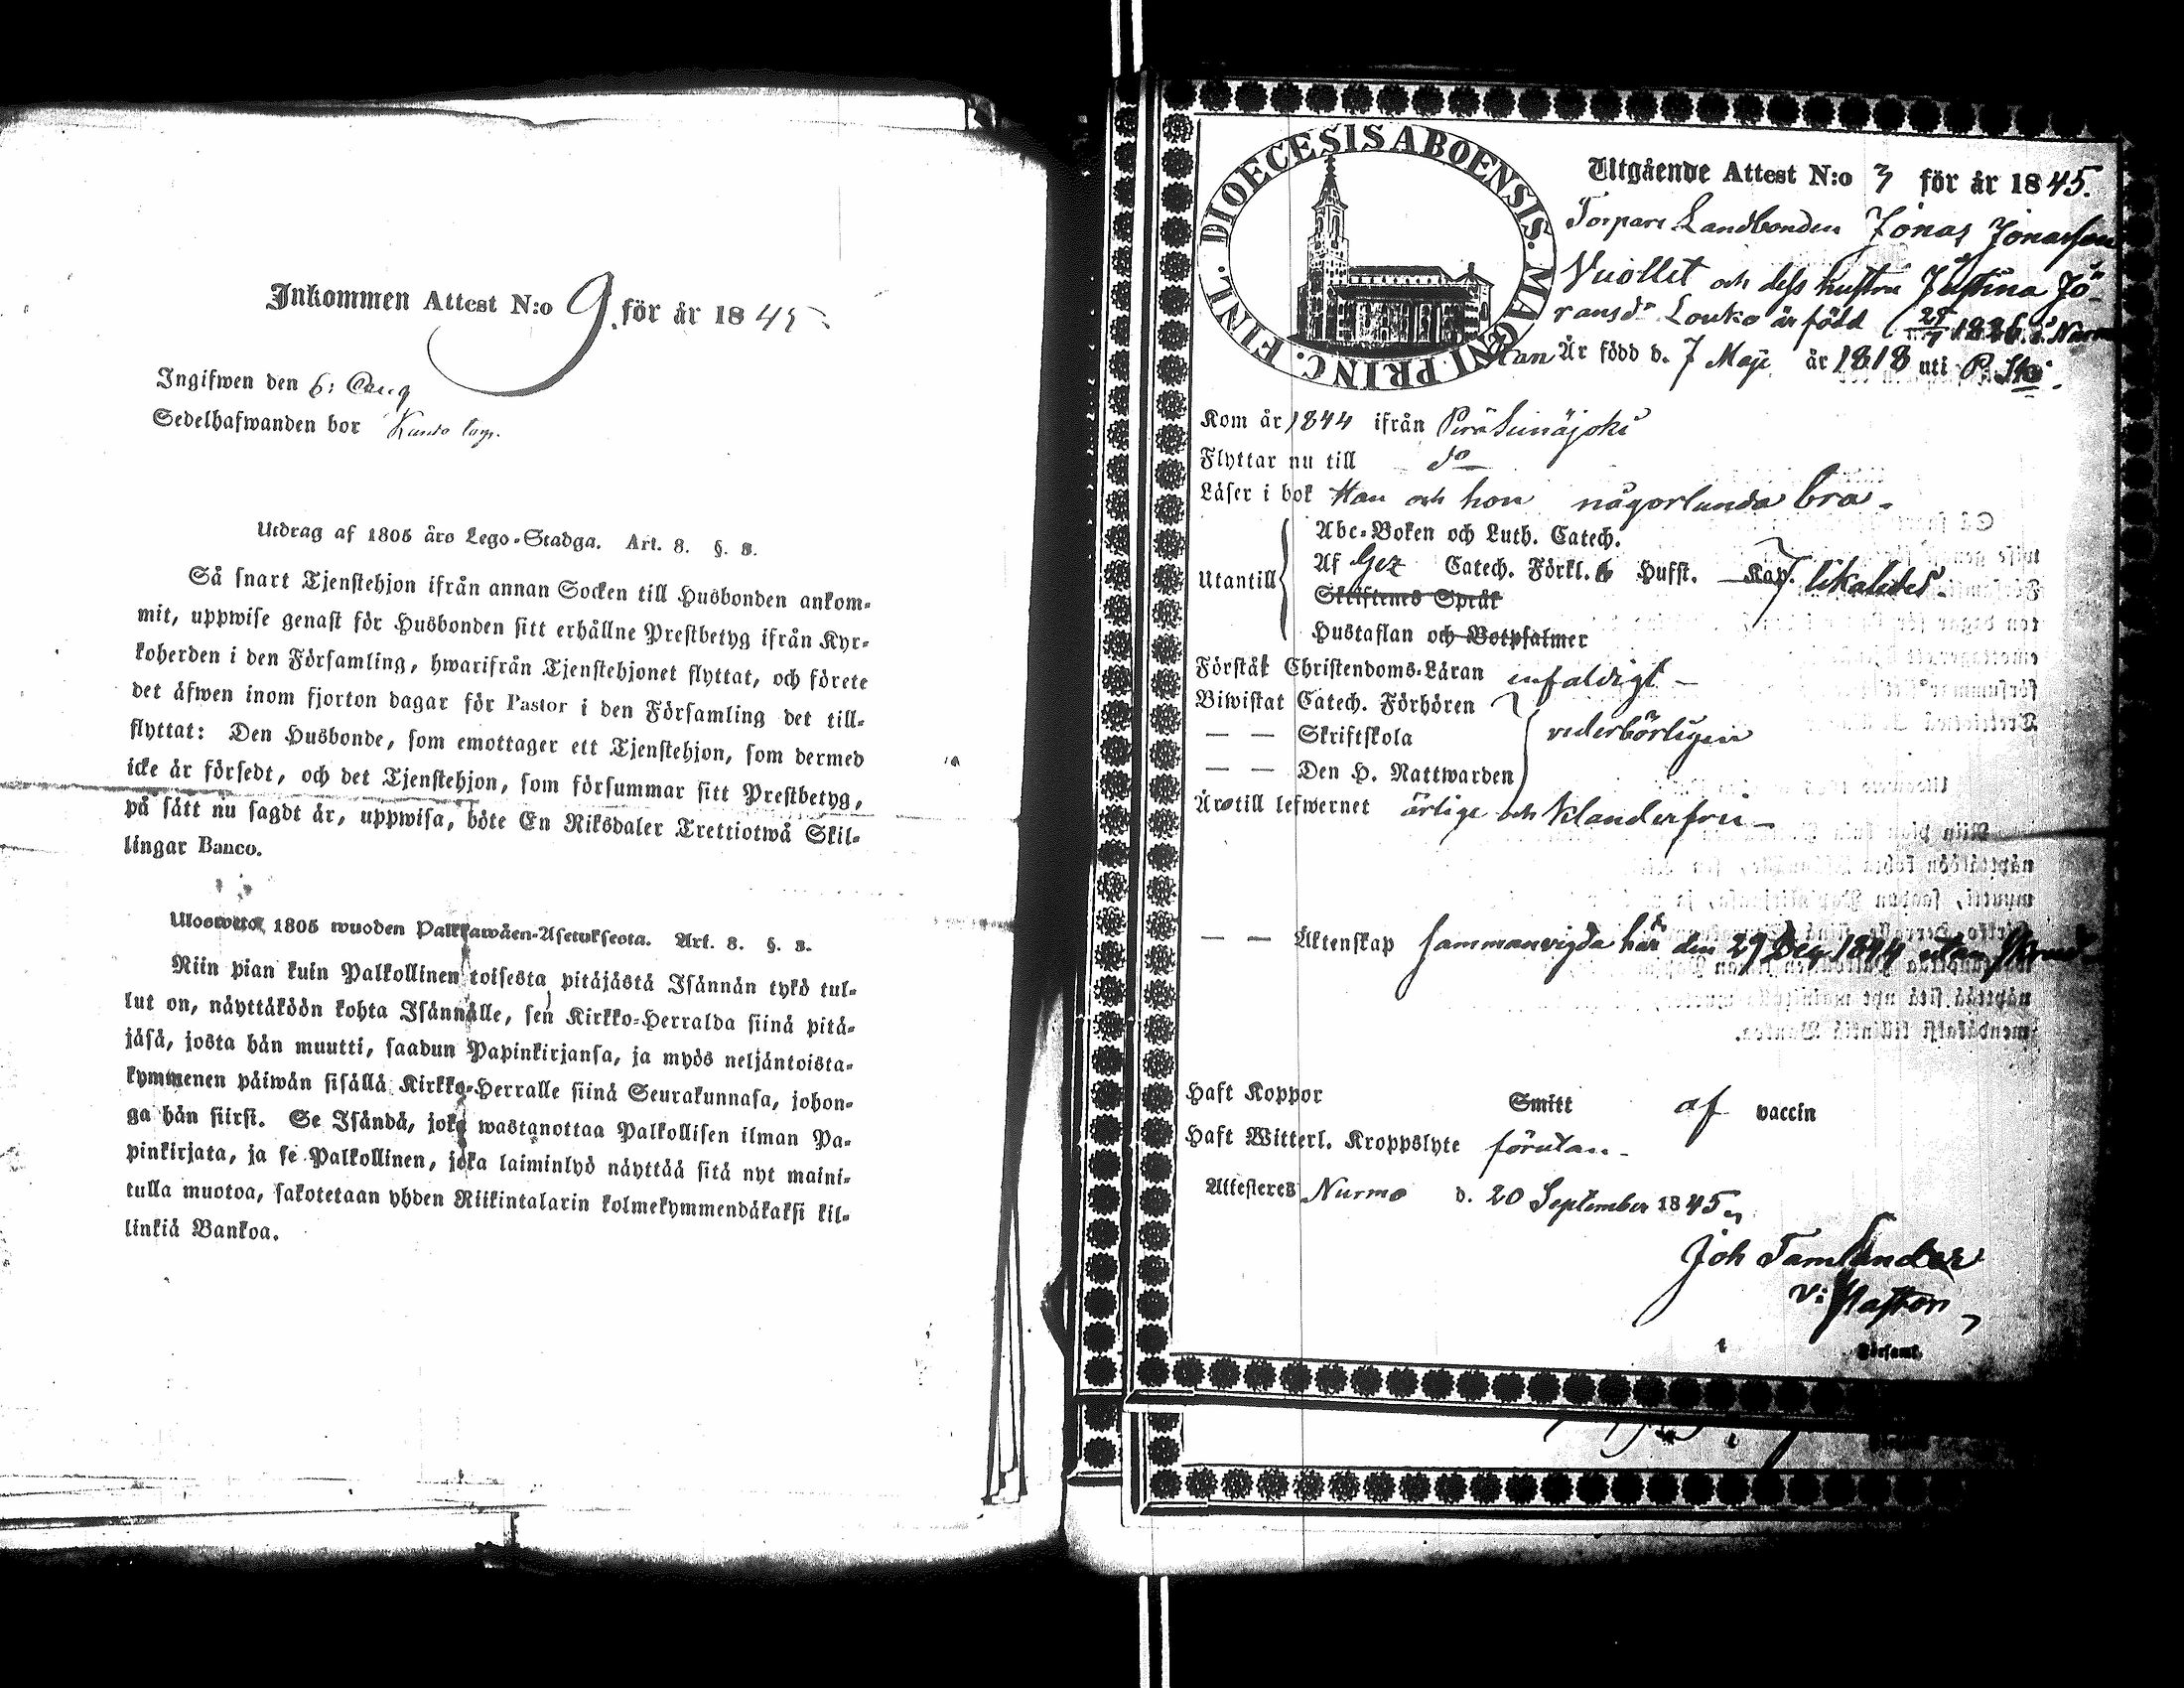 Inkommen Attest N:o 9. för år 1845
Ingifwen den 6:
Sedelhafwanden bor
Utdrag af 1805 års Lego-Stadga. Art. 8. §. 3.
Så snart Tjenstehjon ifrån annan Socken till Husbonden ankom-
mit, uppwise genast för Husbonden sitt erhållne Prestbetyg ifrån Kyr-
koherden i den Församling, hwarifrån Tjenstehjonet flyttat, och förete
det äfwen inom fjorton dagar för Pastor i den Församling det till-
flyttat: Den Husbonde, som emottager ett Tjenstehjon, som dermed
icke är försedt, och det Tjenstehjon, som försummar sitt Prestbetyg,
på sätt nu sagdt är, uppwisa, böte En Riksdaler Trettiotwå Skil-
lingar Banco.
Uloswetto 1805 wuoden Palkkawäen-Asetuksesta. Art. 8. §. 3.
Niin pian kuin Palkollinen toisesta pitäjästä Isännän tykö tul-
lut on, näyttäköön kohta Isännälle, sen Kirkko-Herralda siinä pitä-
jäsä, josta hän muutti, saadun Papinkirjansa, ja myös neljäntoista-
kymmenen päiwän sisällä Kirkko-Herralle siinä Seurakunnasa, johon-
ga hän siirsi. Se Isändä, joka wastanottaa Palkollisen ilman Pa-
pinkirjata, ja se Palkollinen, joka laiminlyö näyttää sitä nyt maini-
tulla muotoa, sakotetaan yhden Riikintalarin kolmekymmendäkaksi kil-
linkiä Bankoa.
DIOECESIS ABOENSIS. MAGNI PRINC. FINL.
Utgående Attest N:o 3 för år 1845.
Torpare Landbonden Jonas Jonasson
Vuollet och dess hustru Justina Jö-
ransdr Louko är född
Han Är född d. 7 Maji år 1818 uti
Kom år 1844 ifrån Peräseinäjoki
Flyttar nu till do
Läser i bok Han och hon någorlunda bra.
Utantill
Abc-Boken och Luth. Catech.
Af Gez Catech. Förkl. Hufst. Kap. likaledes
Skriftenes Språk
Hustaflan och Botpsalmer
Förstår Christendoms-Läran enfaldigt
Biwistat Catech. Förhören
— — Skriftskola vederbörligen
— — Den H. Nattwarden
Äro till lefwernet ärlige och klanderfrie
— — Äktenskap sammanvigda här den 29 Dec. 1844 utan
Haft Koppor Smitt af vaccin
Haft Witterl. Kroppslyte förutan
Attesteres Nurmo d. 20 September 1845
Joh Tamlander
v: Pastor
Församl.